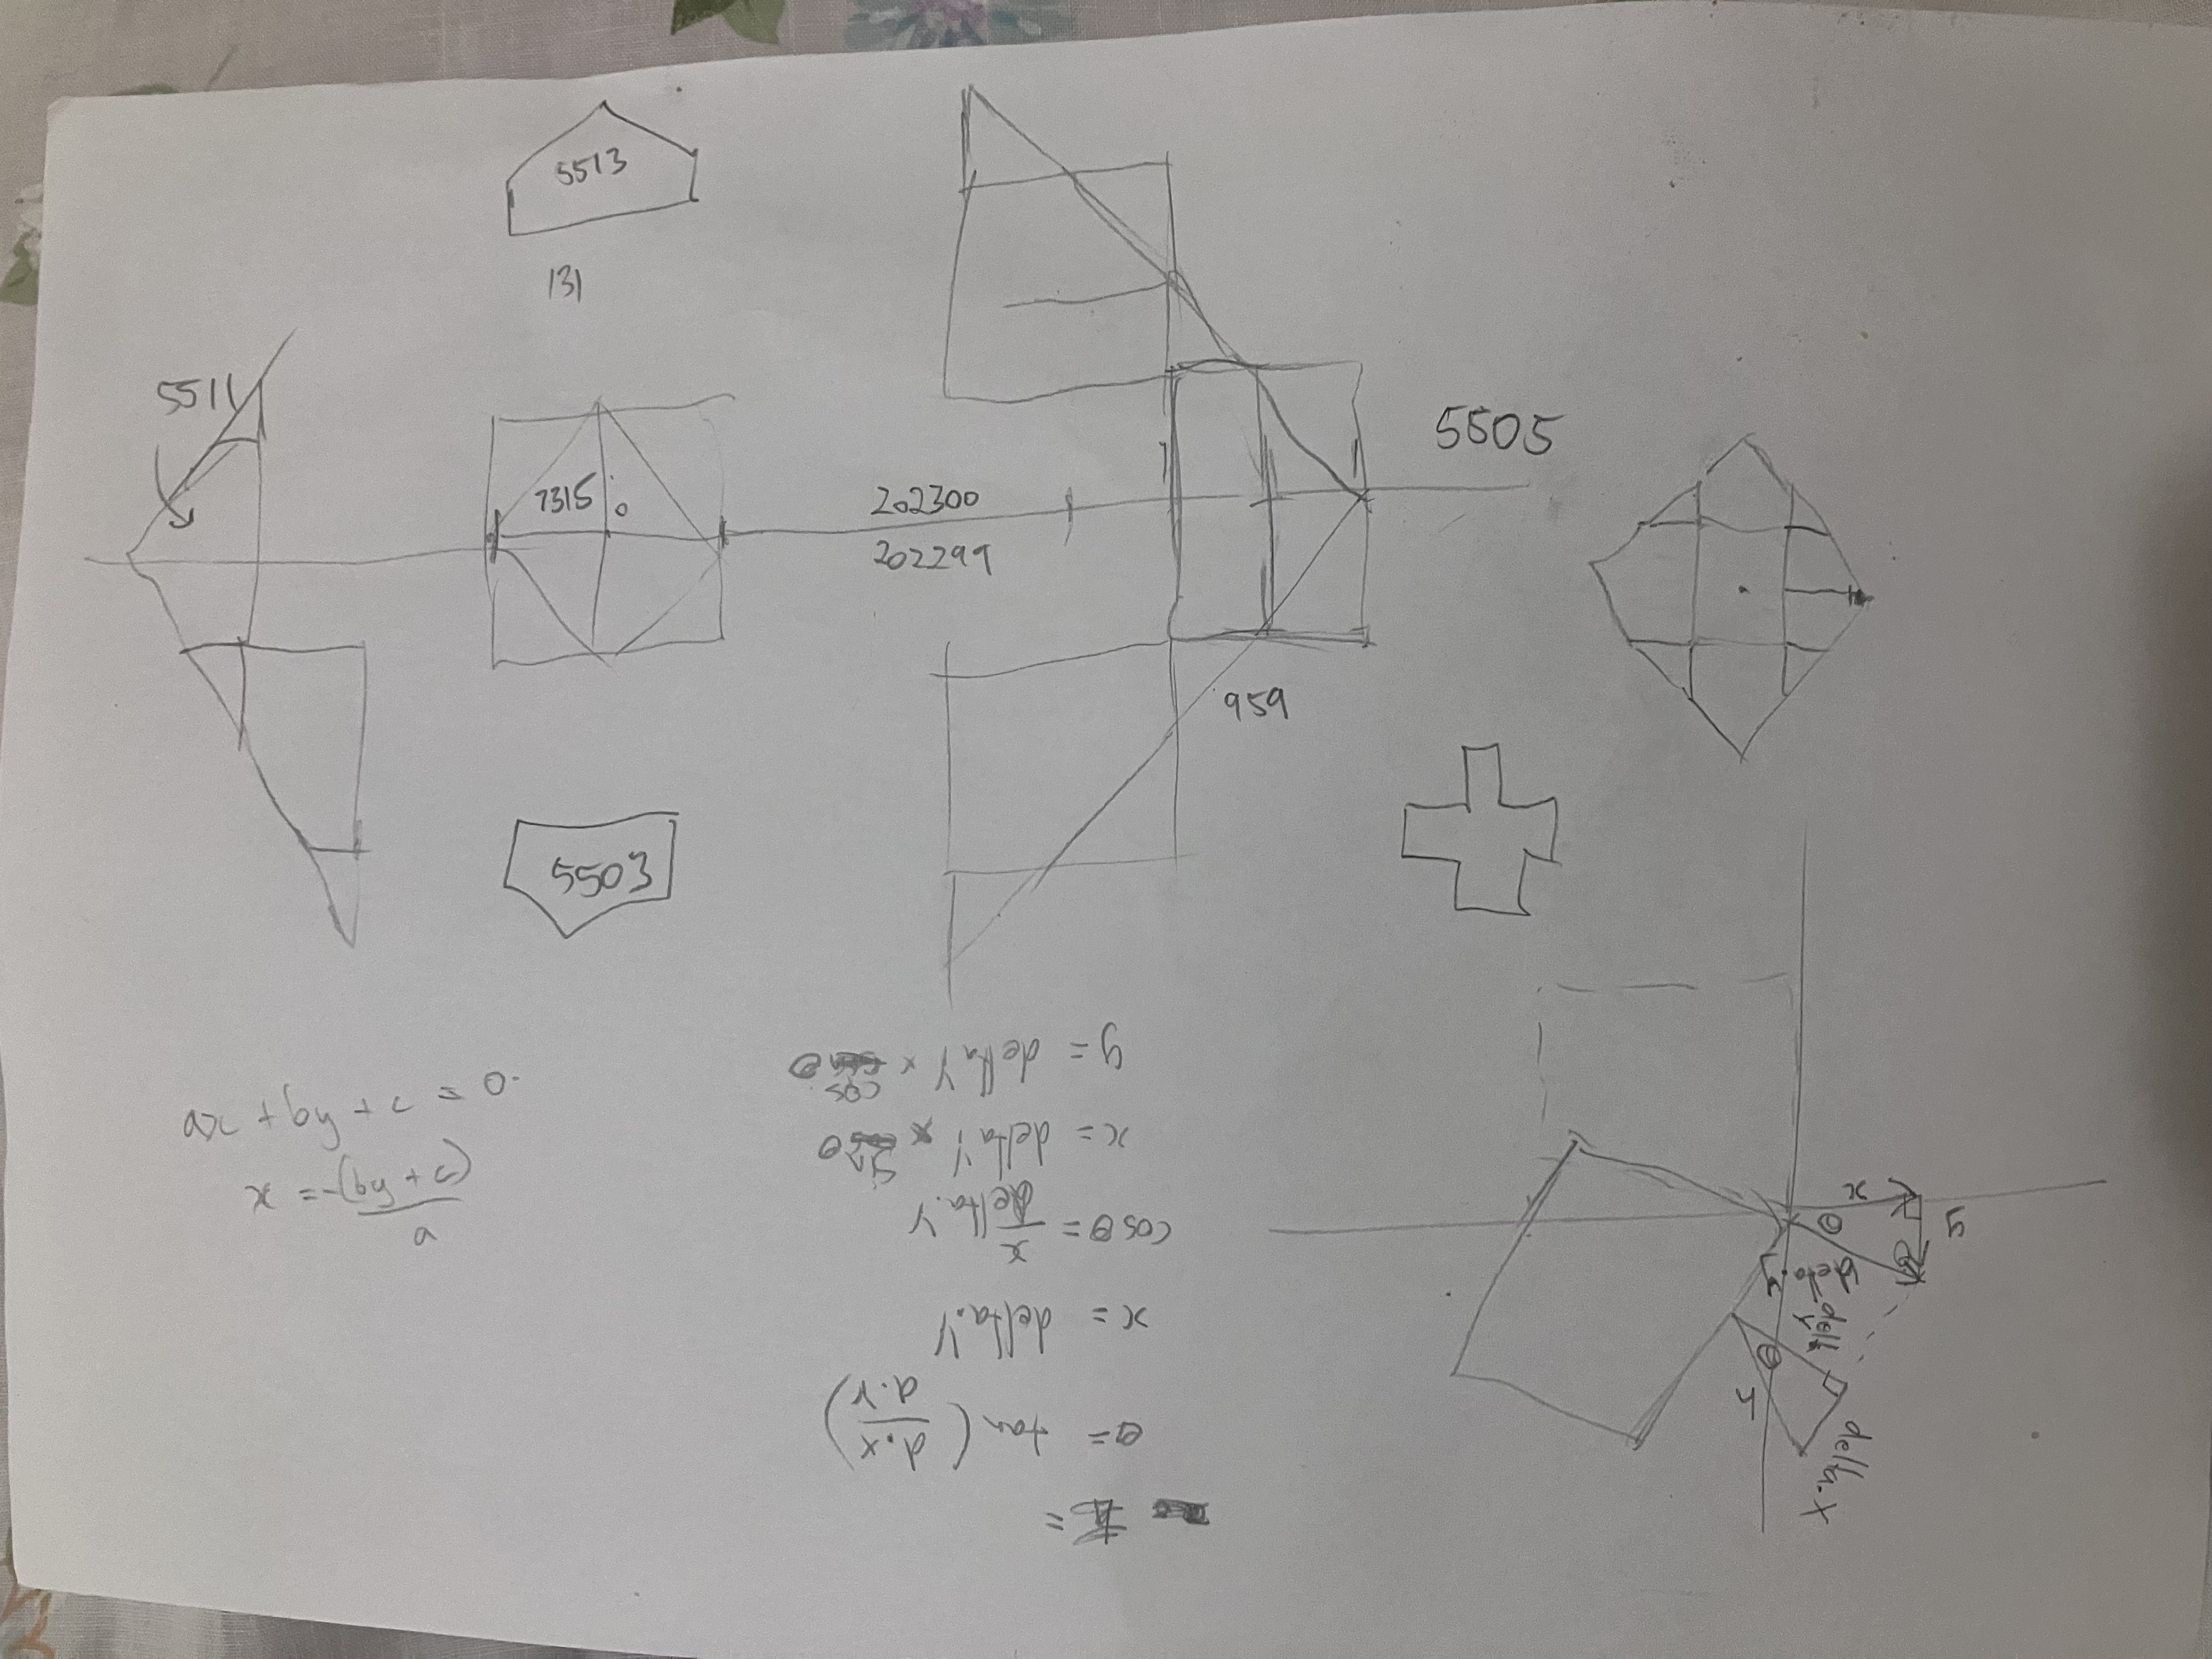 5513
131
5511
7315
202300
202299
5505
959
5503
ax + by + c = 0
x = -(by + c)
a
y = delta Y x cos θ
x = delta Y x sin θ
cos θ = x
delta.Y
x = delta.Y
θ = tan (d.x
d.Y)
=
x
θ
5
delta.Y
θ
delta.X